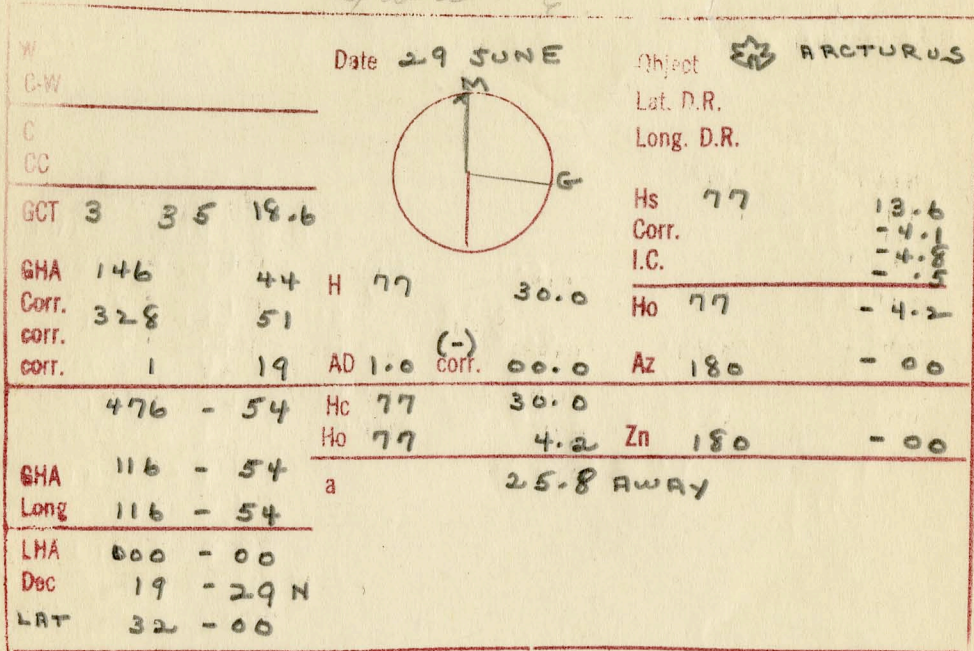 W
C-W
C
CC
GCT 3 35 18.6
GHA 146 44
Corr. 328 51
corr.
corr. 1 19
476 - 54
GHA 116 - 54
Long 116 - 54
LHA 000 - 00
Dec 19 - 29 N
LAT 32 - 00
Date 29 JUNE
M
G
H 77 30.0
AD 1.0 (-) corr. 00.0
Hc 77 30.0
Ho 77 4.2
a 25.8 AWAY
Object ARCTURUS
Lat. D.R.
Long. D.R.
Hs 77 13.6
Corr.
I.C.
Ho 77 - 4.2
Az 180 - 00
Zn 180 - 00